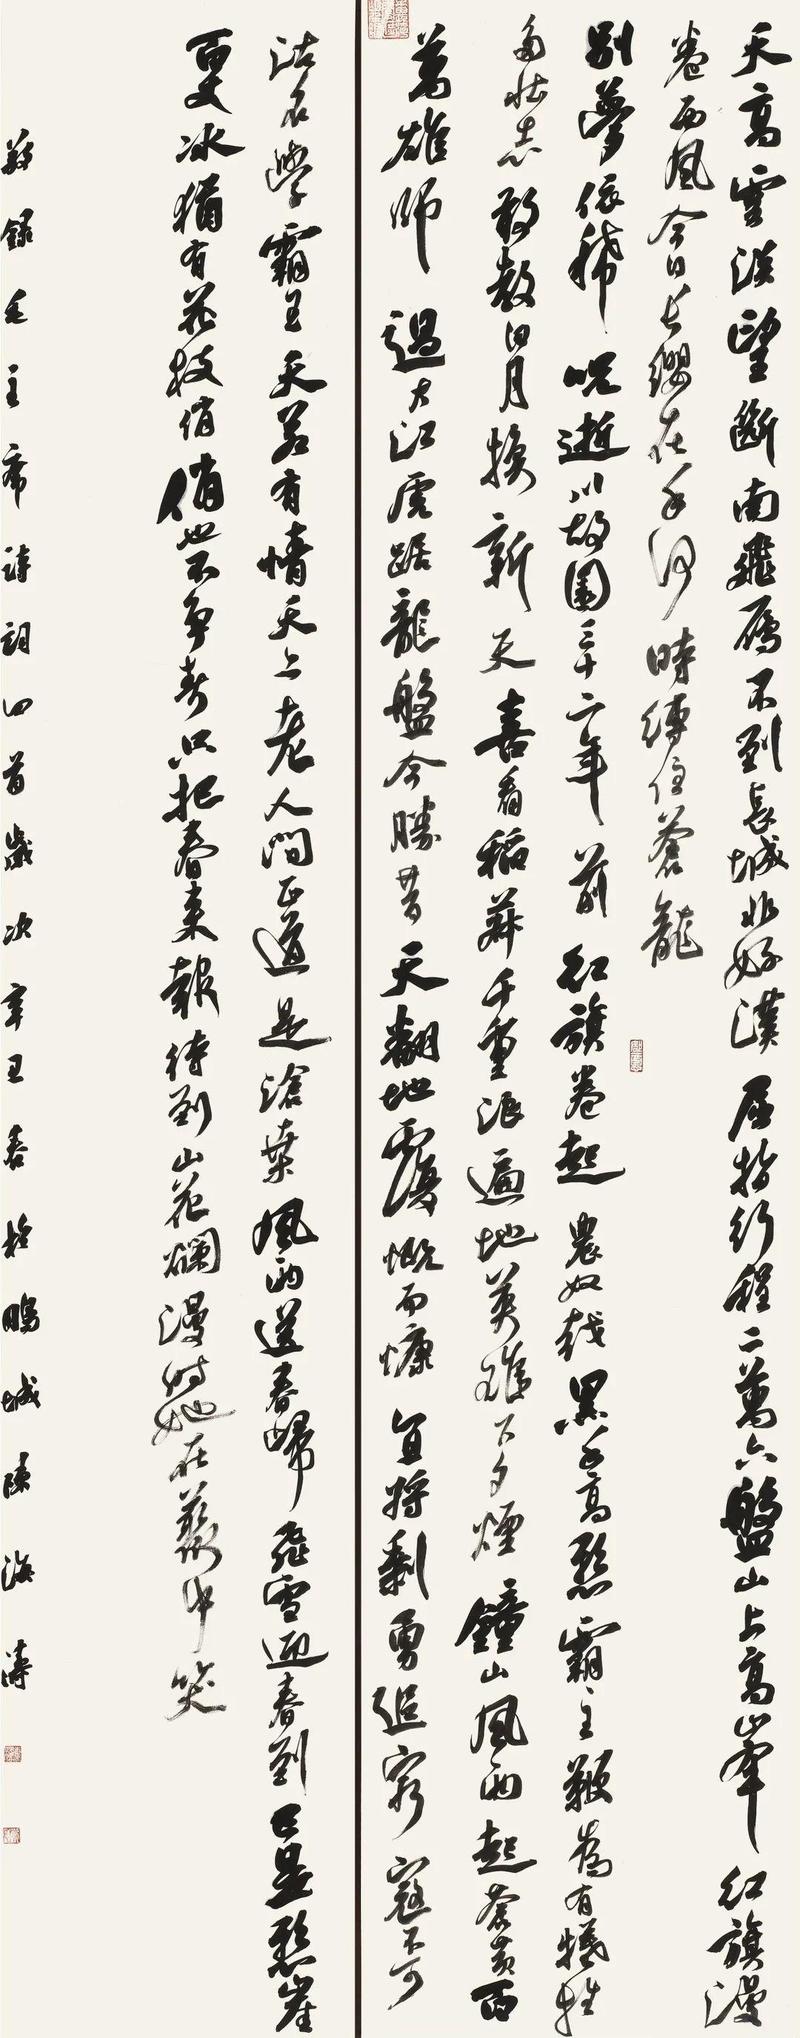 天高雲淡望斷南飛雁不到長城非好漢屈指行程二萬六盤山上高峰紅旗漫
卷西風今日長纓在手何時縛住蒼龍
別夢依稀呪逝川故園三十二年前紅旗卷起農奴戟黑手高懸霸主鞭為有犧牲
多壯志敢教日月換新天喜看稻菽千重浪遍地英雄下夕煙鐘山風雨起蒼黃百
萬雄師過大江虎踞龍盤今勝昔天翻地覆慨而慷宜將剩勇追窮寇不可
沽名學霸王天若有情天亦老人間正道是滄桑風雨送春歸飛雪迎春到已是懸崖
百丈冰猶有花枝俏俏也不爭春只把春來報待到山花爛漫時她在叢中笑
敬錄毛主席詩詞四首歲次辛丑春於鵬城陳海濤